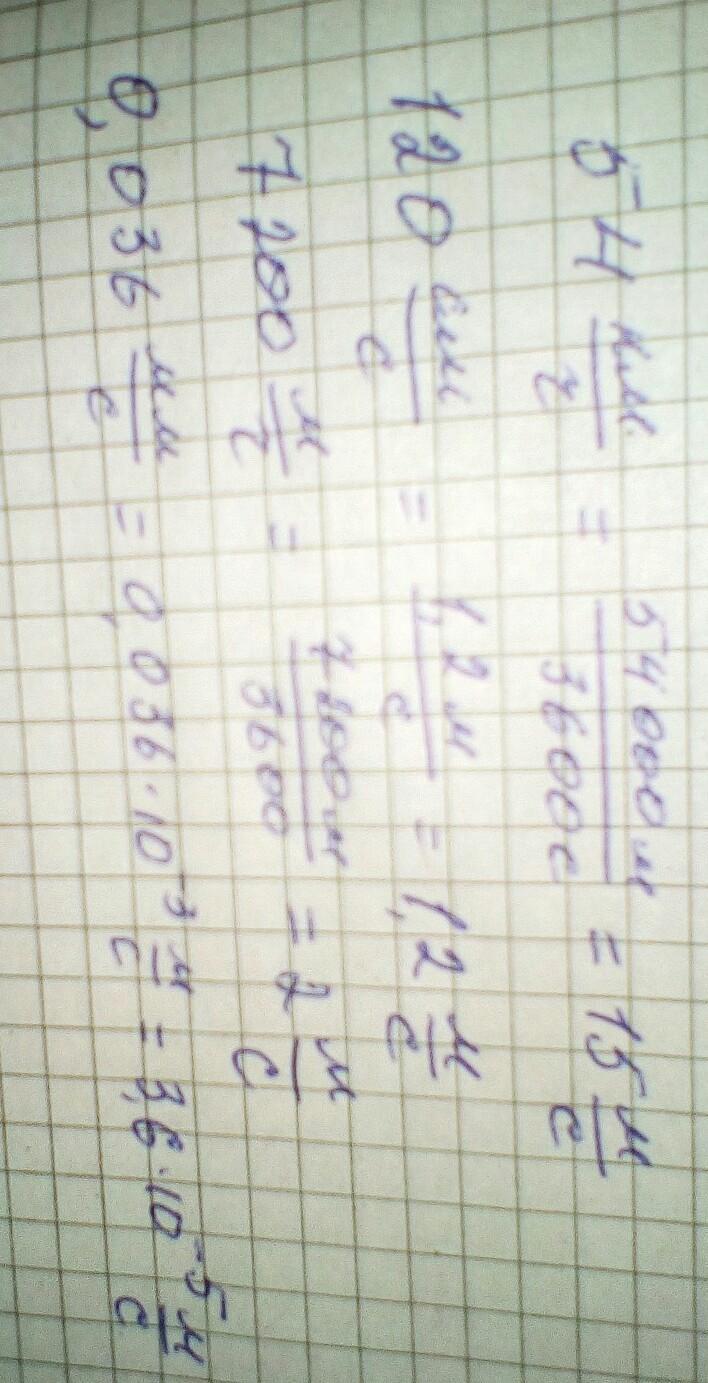 54 км/ч = 54000м/3600с = 15 м/с
120 см/с = 1,2м/с = 1,2 м/с
7200 м/ч = 7200м/3600 = 2 м/с
0,036 мм/с = 0,036·10⁻³ м/с = 3,6·10⁻⁵ м/с